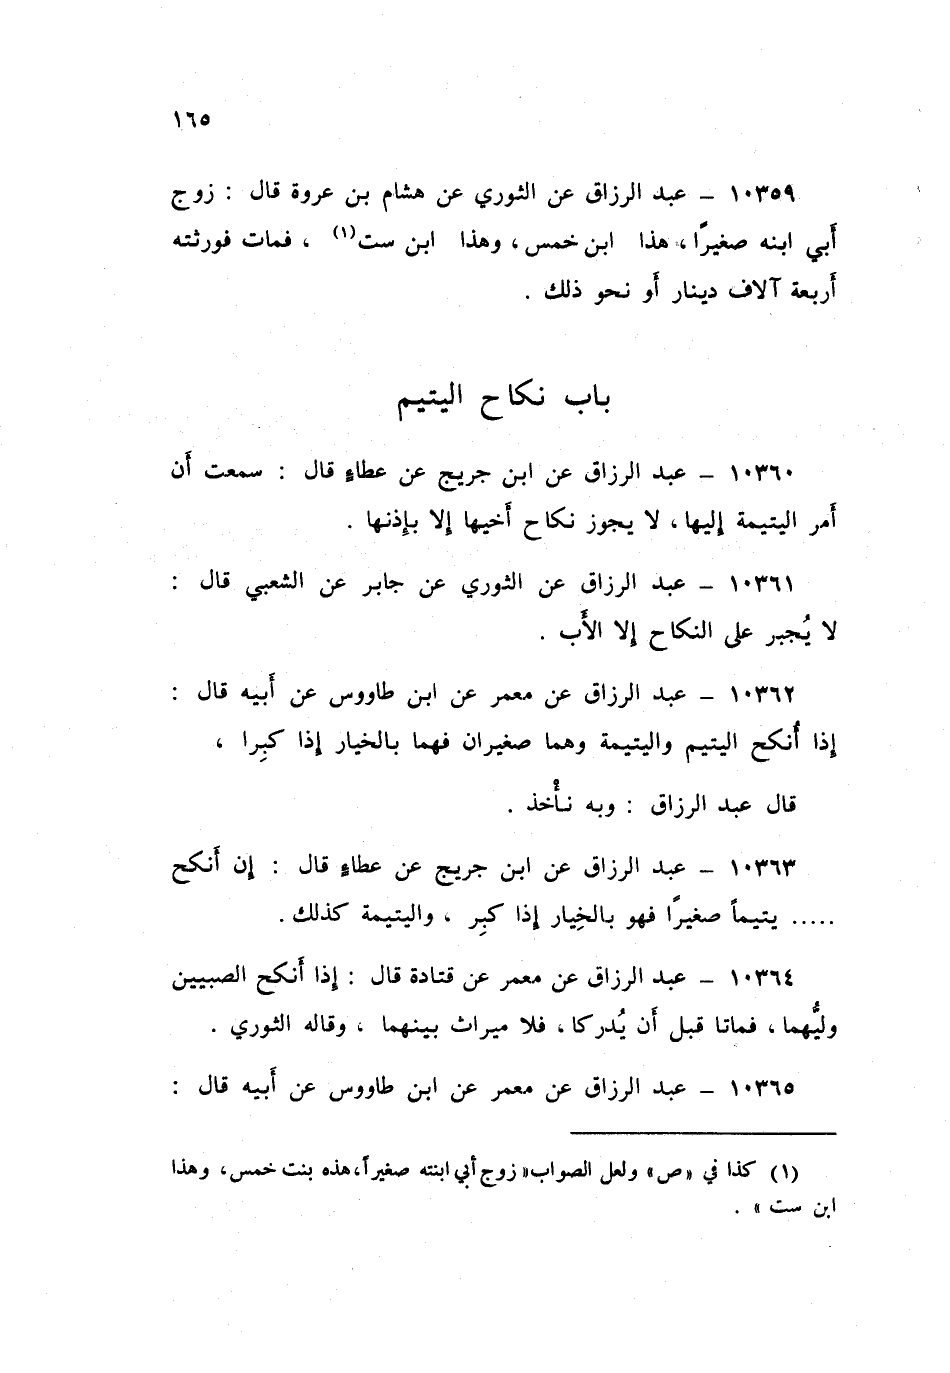 ١٦٥
١٠٣٥٩ – عبد الرزاق عن الثوري عن هشام بن عروة قال : زوج
أَبي ابنه صغيرًا ، هذا ابن خمس ، وهذا ابن ست(١) ، فمات فورثته
أَربعة آلاف دينار أَو نحو ذلك .
باب نكاح اليتيم
١٠٣٦٠ – عبد الرزاق عن ابن جريج عن عطاءٍ قال : سمعت أَن
أَمر اليتيمة إِليها ، لا يجوز نكاح أَخيها إِلا بإِذنها .
١٠٣٦١ – عبد الرزاق عن الثوري عن جابر عن الشعبي قال :
لا يُجبر على النكاح إِلا الأَب .
١٠٣٦٢ – عبد الرزاق عن معمر عن ابن طاووس عن أَبيه قال :
إِذا أُنكح اليتيم واليتيمة وهما صغيران فهما بالخيار إِذا كبِرا ،
قال عبد الرزاق : وبه نأْخذ .
١٠٣٦٣ – عبد الرزاق عن ابن جريج عن عطاءٍ قال : إِن أَنكح
..... يتيماً صغيرًا فهو بالخِيار إِذا كبِر ، واليتيمة كذلك .
١٠٣٦٤ – عبد الرزاق عن معمر عن قتادة قال : إِذا أَنكح الصبيين
وليُّهما ، فماتا قبل أَن يُدركا ، فلا ميراث بينهما ، وقاله الثوري .
١٠٣٦٥ – عبد الرزاق عن معمر عن ابن طاووس عن أَبيه قال :
(١) كذا في «ص» ولعل الصواب «زوج أبي ابنته صغيراً، هذه بنت خمس، وهذا
ابن ست » .